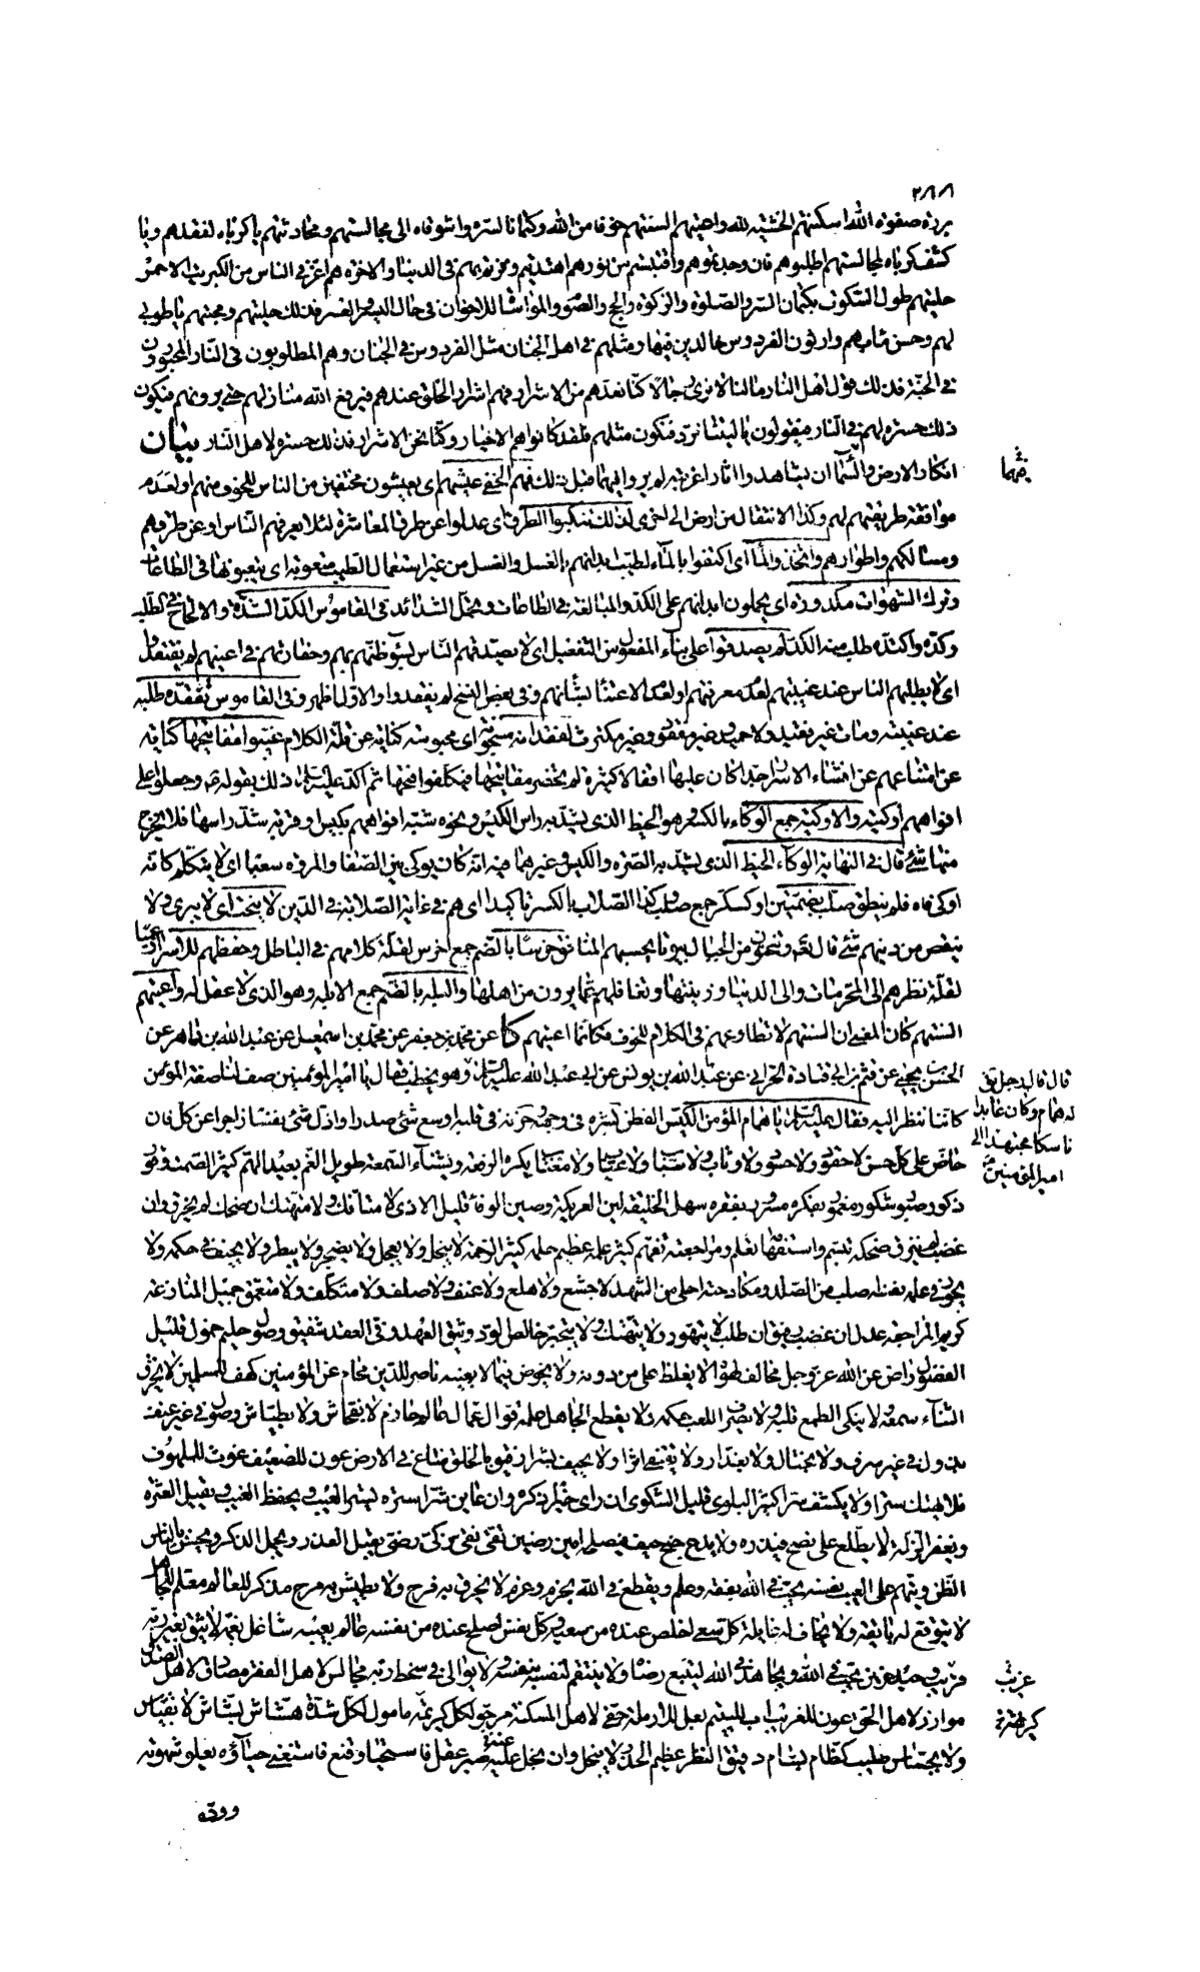 ٢٨٨
بررة صفوة الله اسكنتهم الخشية لله واعيتهم السنتهم خوفا من الله وكتمانا لسره واشوقاه الى مجالستهم ومحادثتهم يا كرباه لفقدهم ويا
كشف كرباه لمجالستهم اطلبوهم فان وجدتموهم واقتبستم من نورهم اهتديتم وفزتم بهم في الدنيا والاخرة هم اعز في الناس من الكبريت الاحمر
حليتهم طول السكوت بكتمان السر والصلوة والزكوة والحج والصوم والمواساة للاخوان في حال اليسر والعسر فذلك حليتهم ومحبتهم يا طوبى
لهم وحسن مآب هم وارثون الفردوس خالدين فيها ومثلهم في اهل الجنان مثل الفردوس في الجنان وهم المطلوبون في النار المحبورون
في الجنة فذلك قول اهل النار ما لنا لا نرى رجالا كنا نعدهم من الاشرار فهم اشرار الخلق عندهم فيرفع الله منازلهم حتى يرونهم فيكون
ذلك حسرة لهم في النار فيقولون يا ليتنا نرد فنكون مثلهم فلقد كانوا هم الاخيار وكنا نحن الاشرار فذلك حسرة لاهل النار بيان
انكار الارض والسماء ان يشاهدوا اثارا غريبة لم يروا فيهما قبل ذلك فهم الخفي عيشهم اى يعيشون مختفين من الناس للخوف منهم او لعدم
موافقة طريقتهم لهم وكذا الانتقال من ارض الى اخرى لذلك تنكبوا الطرق اى عدلوا عن طرق المعاشرة لئلا يعرفهم الناس او عن طرقهم
ومسالكهم واطوارهم واتخذوا الماء اى اكتفوا بالماء لطيب ابدانهم بالغسل والغسل من غير استعمال الطيب متعوبة اى يتعبونها في الطاعات
وترك الشهوات مكدودة اى يحملون ابدانهم على الكد والمبالغة في الطاعات وتحمل الشدائد في القاموس الكد الشدة والالحاح في الطلب
وكده واكتده طلب منه الكد لم يصدقوا على بناء المفعول من التفعيل اى لا يصدقهم الناس لسوء ظنهم بهم وحقارتهم في اعينهم لم يفتقدوا
اى لا يطلبهم الناس عند غيبتهم لعدم معرفتهم او لعدم الاعتناء بشانهم وفي بعض النسخ لم يفقدوا والاول اظهر وفي القاموس تفقده طلبه
عند غيبته ومات غير فقيد ولا حميد وغير مفقود غير مكترث لفقدانه مسجونة اى محبوسة كناية عن قلة الكلام غيبوا مفاتيحها كناية
عن امتناعهم عن افشاء الاسرار جدا كان عليها اقفالا كثيرة لم يحضر مفاتيحها فيمكن فتحها ثم اكد عليه السلام ذلك بقوله وجعلوا على
افواههم اوكية والاوكية جمع الوكاء بالكسر وهو الخيط الذى يشد به راس الكيس ونحوه شبه افواههم بكيس او قربة شد راسها فلا يخرج
منها شئ قال في النهاية الوكاء الخيط الذى يشد به الصرة والكيس وغيرهما فيه انه كان يوكى بين الصفا والمروة سعيا اى لا يتكلم كانه
اوكى فاه فلم ينطق صلب بضمتين او كسكر جمع صلب كذا الصلاب بالكسر تاكيدا اى هم في غاية الصلابة في الدين لا ينحت اى لا يبرى ولا
ينقص من دينهم شئ قال تعالى وتنحتون من الجبال بيوتا يحسبهم المنافق خرسا بالضم جمع اخرس لقلة كلامهم في الباطل وحفظهم للاسرار وعميا
لقلة نظرهم الى المحرمات والى الدنيا وزينتها وتغافلهم عما يرون من اهلها والبله بالضم جمع الابله وهو الذى لا عقل له واعيتهم
السنتهم كان المعنى ان السنتهم لا تطاوعهم في الكلام للخوف فكانما اعيتهم كا عن محمد بن جعفر عن محمد بن اسمعيل عن عبد الله بن داهر عن
الحسن بن يحيى عن قثم بن ابى قتادة الحراني عن عبد الله بن يونس عن ابى عبد الله عليه السلام وهو يخطب فقال يا امير المؤمنين صف لنا صفة المؤمن
كاننا ننظر اليه فقال عليه السلام يا همام المؤمن الكيس الفطن بشره في وجهه وحزنه في قلبه اوسع شئ صدرا واذل شئ نفسا زاجر عن كل فان
حاض على كل حسن لا حقود ولا حسود ولا وثاب ولا سباب ولا عياب ولا مغتاب يكره الرفعة ويشناء السمعة طويل الغم بعيد الهم كثير الصمت وقور
ذكور صبور شكور مغموم بفكره مسرور بفقره سهل الخليقة لين العريكة رصين الوفاء قليل الاذى لا متافك ولا متهتك ان ضحك لم يخرق وان
غضب لم ينزق ضحكه تبسم واستفهامه تعلم ومراجعته تفهم كثير علمه عظيم حلمه كثير الرحمة لا يبخل ولا يعجل ولا يضجر ولا يبطر ولا يحيف في حكمه ولا
يجور في علمه نفسه اصلب من الصلد ومكادحته احلى من الشهد لا جشع ولا هلع ولا عنف ولا صلف ولا متكلف ولا متعمق جميل المنازعة
كريم المراجعة عدل ان غضب رفيق ان طلب لا يتهور ولا يتهتك ولا يتجبر خالص الود وثيق العهد وفي العقد شفيق وصول حليم خمول قليل
الفضول راض عن الله عز وجل مخالف لهواه لا يغلظ على من دونه ولا يخوض فيما لا يعنيه ناصر للدين محام عن المؤمنين كهف للمسلمين لا يخرق
الثناء سمعه ولا ينكى الطمع قلبه ولا يصرف اللعب حكمه ولا يطلع الجاهل علمه قوال عمال عالم حازم لا بفحاش ولا بطياش وصول في غير عنف
بذول في غير سرف ولا بختال ولا بغدار ولا يقتفى اثرا ولا يحيف بشرا رفيق بالخلق ساع في الارض عون للضعيف غوث للملهوف
لا يهتك سترا ولا يكشف سرا كثير البلوى قليل الشكوى ان راى خيرا ذكره وان عاين شرا ستره يستر العيب ويحفظ الغيب ويقيل العثرة
ويغفر الزلة لا يطلع على نصح فيذره ولا يدع جنح حيف فيصلحه امين رصين تقى نقى زكى رضى يقبل العذر ويجمل الذكر ويحسن بالناس
الظن ويتهم على العيب نفسه يحب في الله بفقه وعلم ويقطع في الله بحزم وعزم لا يخرق به فرح ولا يطيش به مرح مذكر للعالم معلم للجاهل
لا يتوقع له بائقة ولا يخاف له غائلة كل سعى اخلص عنده من سعيه وكل نفس اصلح عنده من نفسه عالم بعيبه شاغل بغمه لا يثق بغير ربه
قريب وحيد حزين يحب في الله ويجاهد في الله ليتبع رضاه ولا ينتقم لنفسه بنفسه ولا يوالى في سخط ربه مجالس لاهل الفقر مصادق لاهل الصدق
موازر لاهل الحق عون للغريب اب لليتيم بعل للارملة حفى لاهل المسكنة مرجو لكل كريهة مامول لكل شدة هشاش بشاش لا بعباس
ولا بجساس صليب كظام بسام دقيق النظر عظيم الحذر لا يبخل وان بخل عليه صبر عقل فاستحيا وقنع فاستغنى حياؤه يعلو شهوته
ووده
فيهما
قال قام رجل يق
له همام وكان عابدا
ناسكا مجتهدا الى
امير المؤمنين
غريب
كريهة